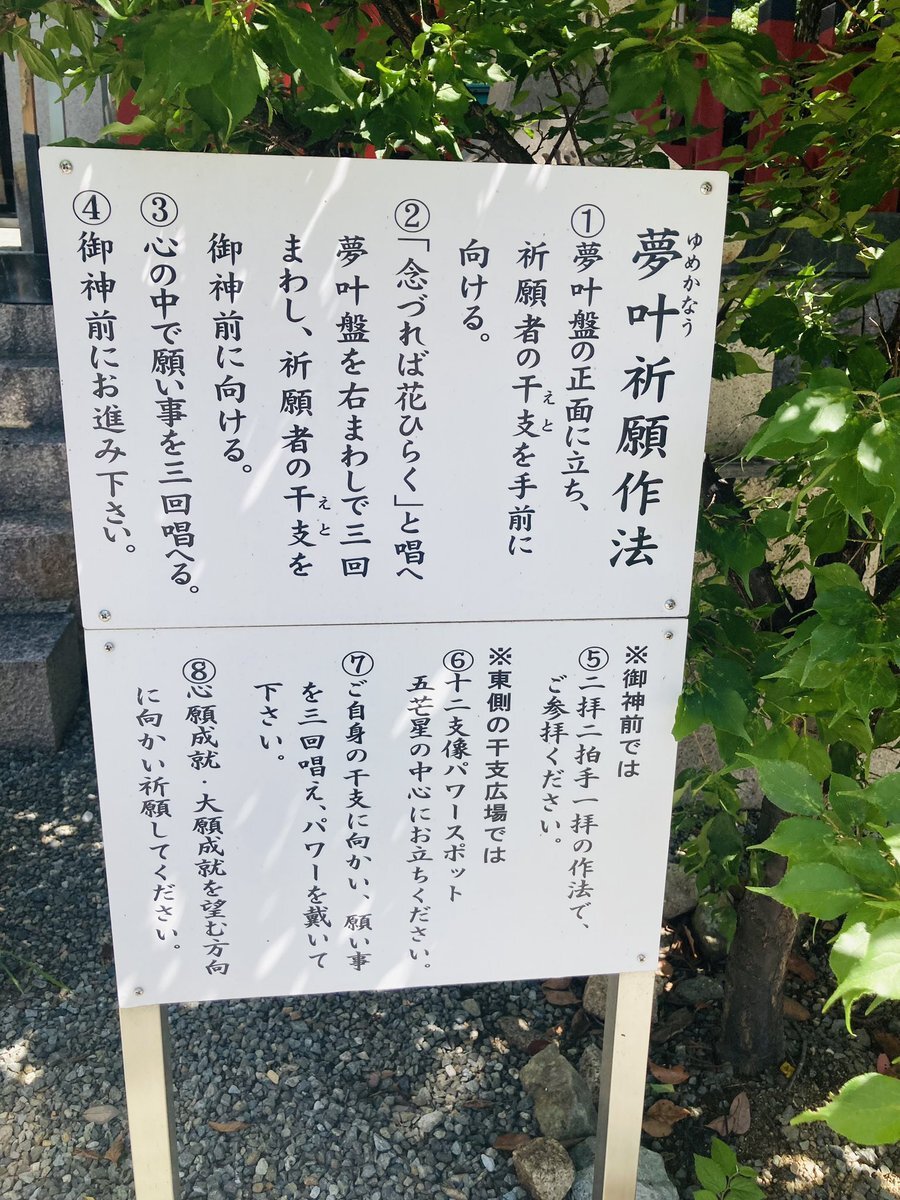 夢叶祈願作法
ゆめかなう
①夢叶盤の正面に立ち、
祈願者の干支を手前に
えと
向ける。
②「念づれば花ひらく」と唱へ
夢叶盤を右まわしで三回
まわし、祈願者の干支を
えと
御神前に向ける。
③心の中で願い事を三回唱へる。
④御神前にお進み下さい。
※御神前では
⑤二拝二拍手一拝の作法で、
ご参拝ください。
※東側の干支広場では
⑥十二支像パワースポット
五芒星の中心にお立ちください。
⑦ご自身の干支に向かい、願い事
を三回唱え、パワーを戴いて
下さい。
⑧心願成就・大願成就を望む方向
に向かい祈願してください。